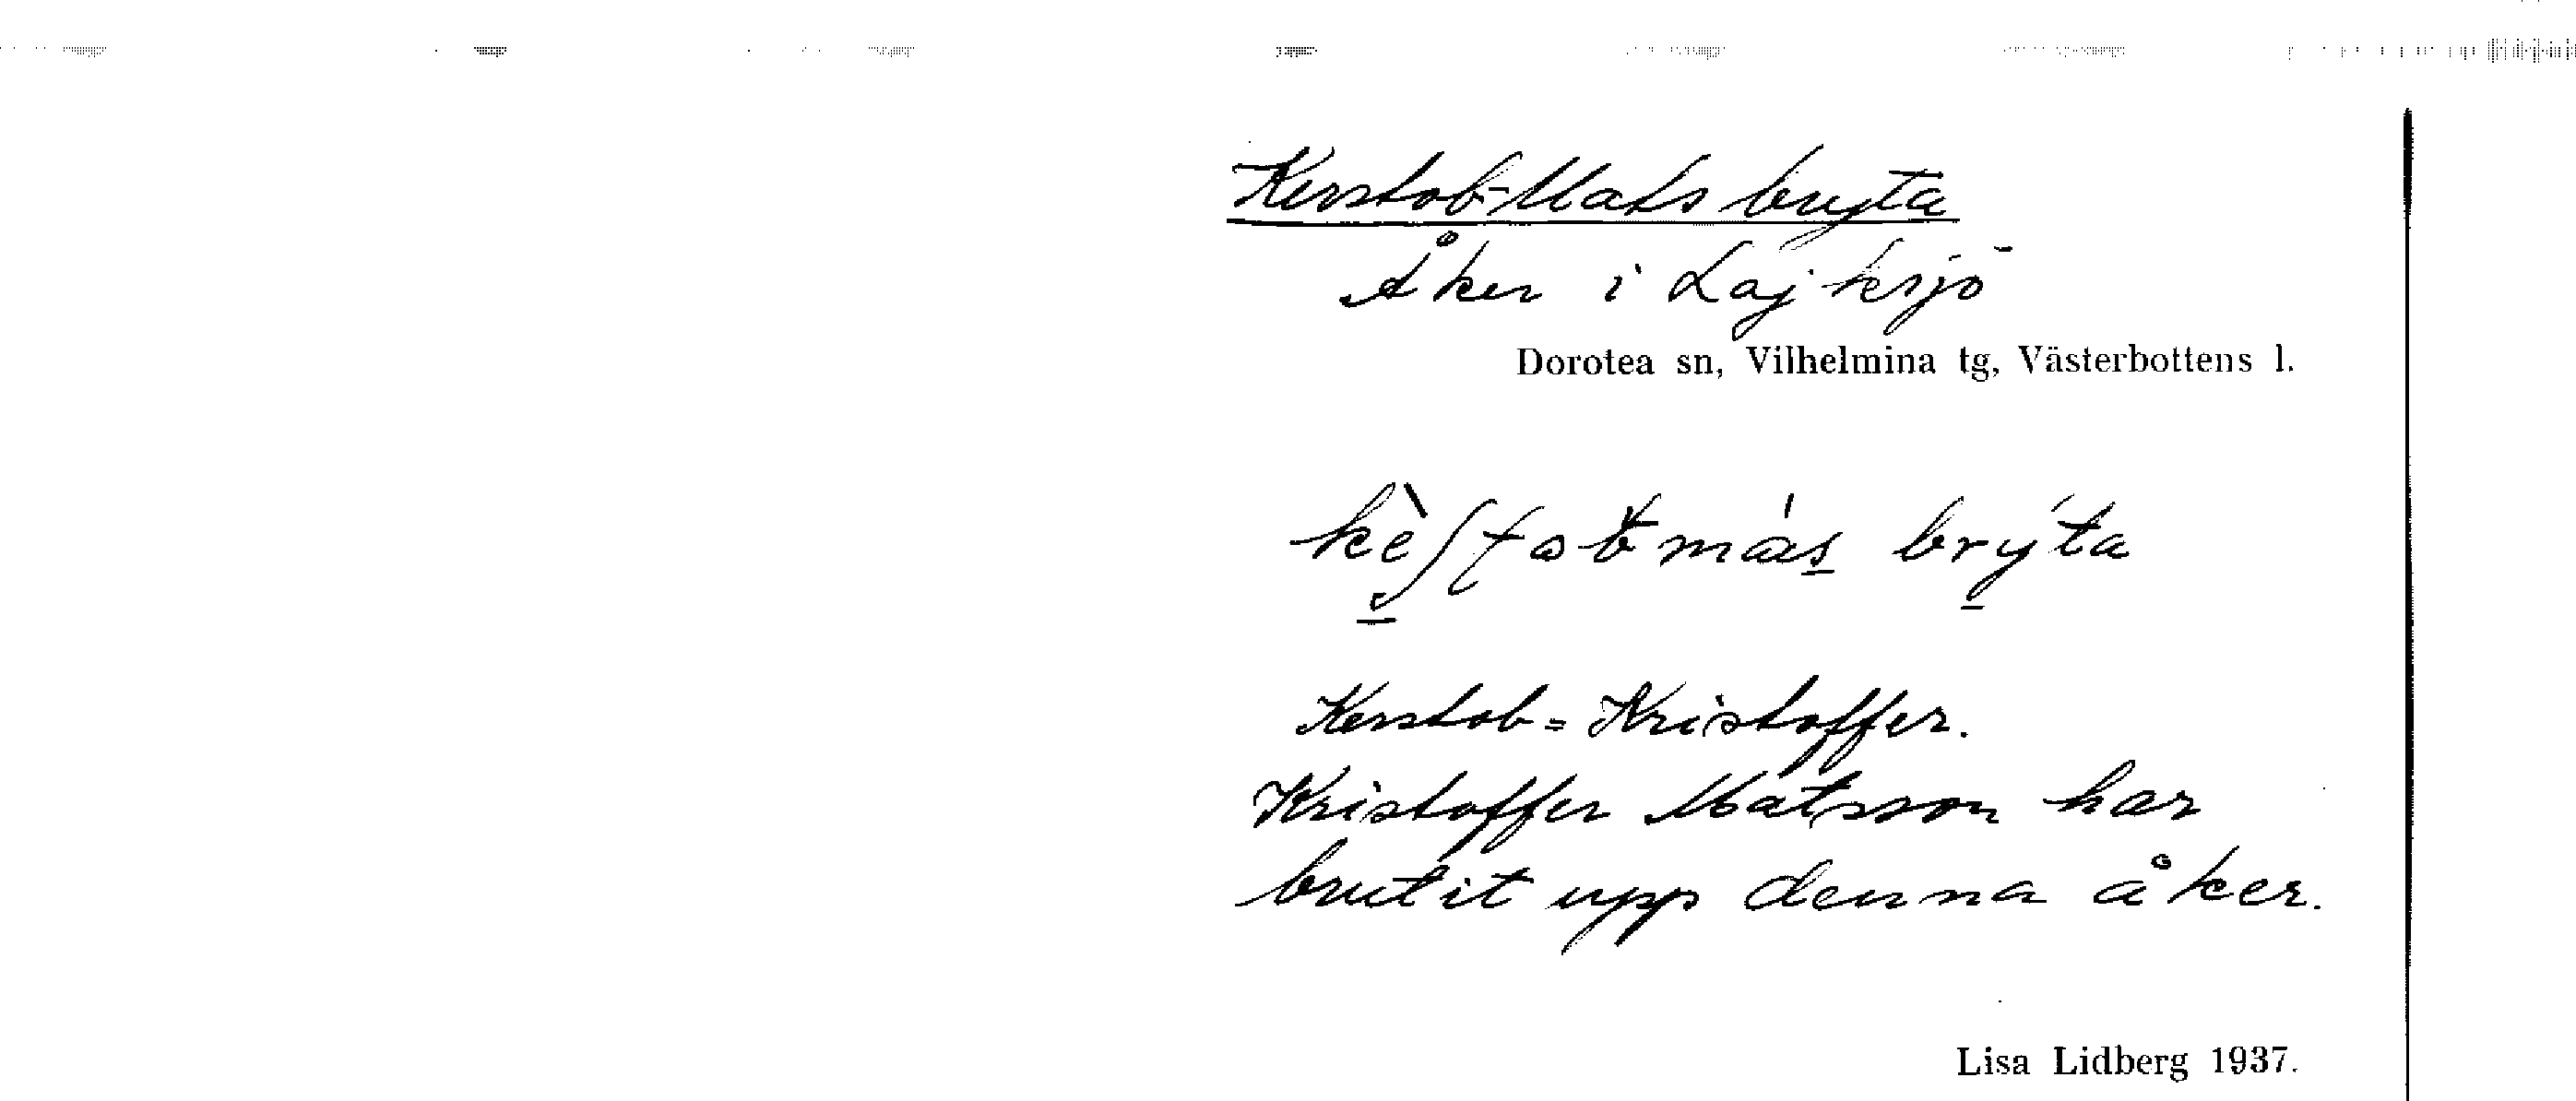 Kerstob-Mats bryta
Åker i Lajksjö
Dorotea sn, Vilhelmina tg, Västerbottens l.
brý̱ta
Kerstob = Kristoffer.
Kristoffer Matsson har
brutit upp denna åker.
Lisa Lidberg 1937.